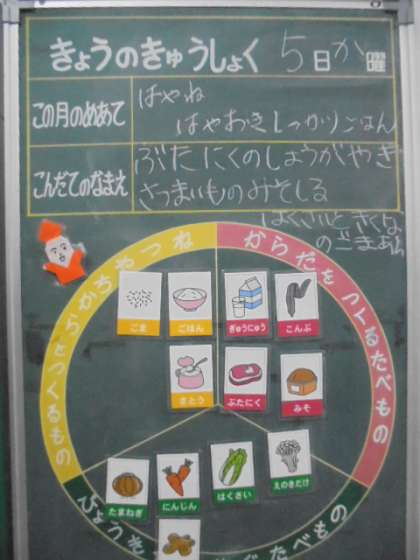 きょうのきゅうしょく 5日か曜
この月のめあて
はやね
はやおきしっかりごはん
こんだてのなまえ
ぶたにくのしょうがやき
さつまいものみそしる
はくさいと きくな
のごまあえ
ねつやちからをつくるもの
からだをつくるたべもの
ごま
ごはん
ぎゅうにゅう
こんぶ
さとう
ぶたにく
みそ
たまねぎ
にんじん
はくさい
えのきだけ